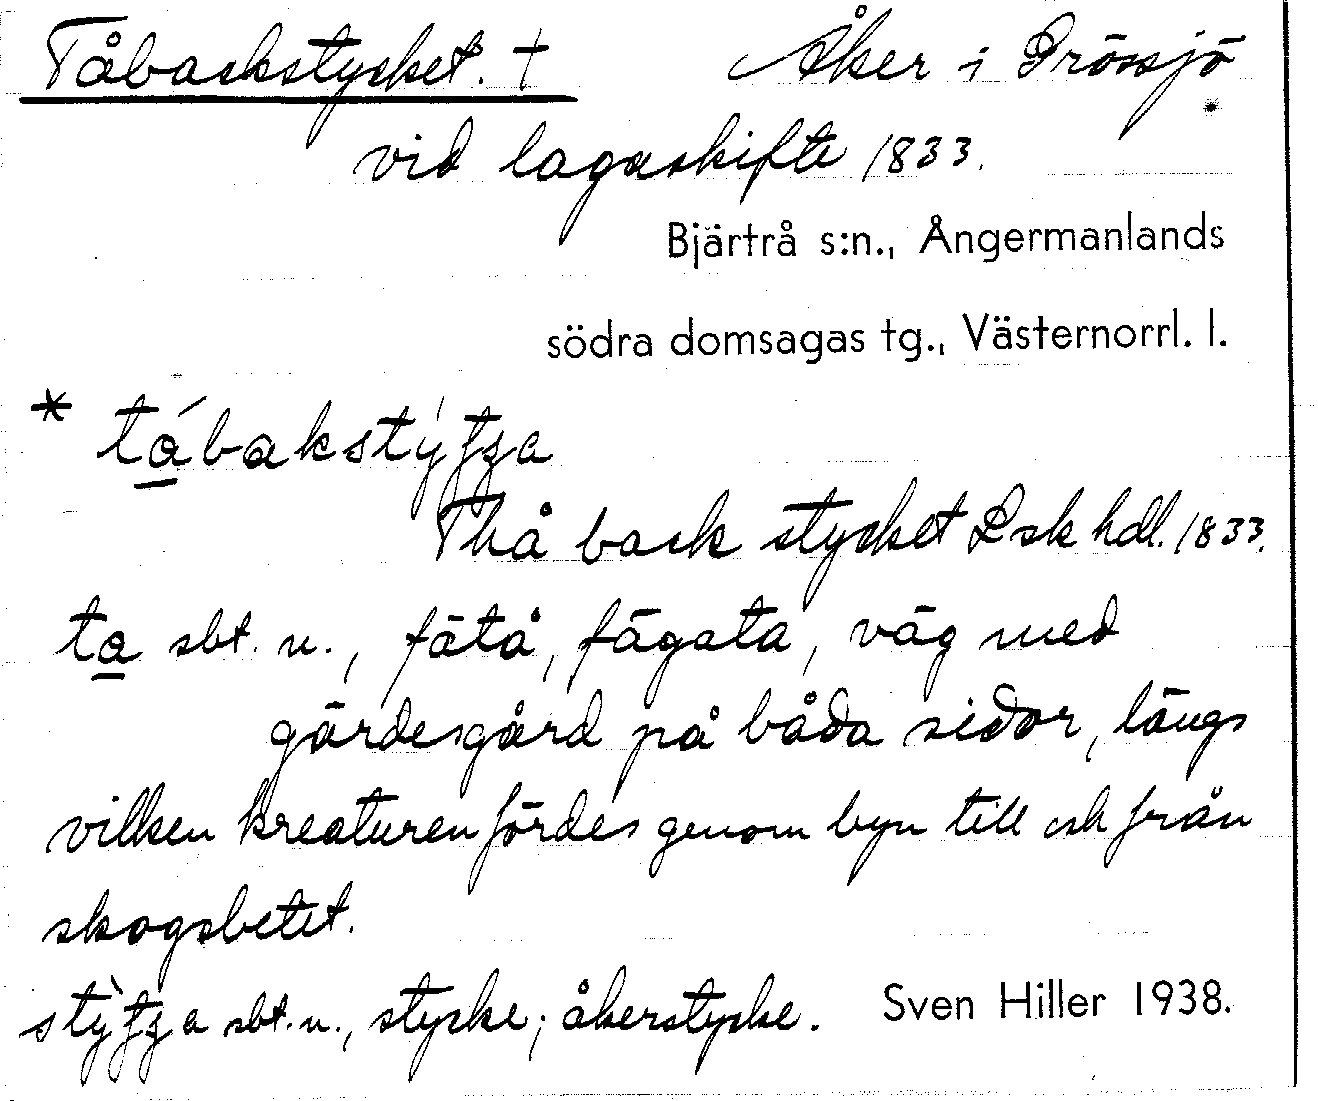 Tåbackstycket. † Åker i Grössjö
vid lagaskifte 1833.
Bjärtrå s:n., Ångermanlands
södra domsagas tg., Västernorrl. l.
* tábakstýʃʒa
Thå back stycket Lsk hdl. 1833.
ta sbt. n., fätå, fägata, väg med
gärdesgård på båda sidor, längs
vilken kreaturen fördes genom byn till och från
skogsbetet.
stỳʃʒa sbt. n., stycke; åkerstycke. Sven Hiller 1938.